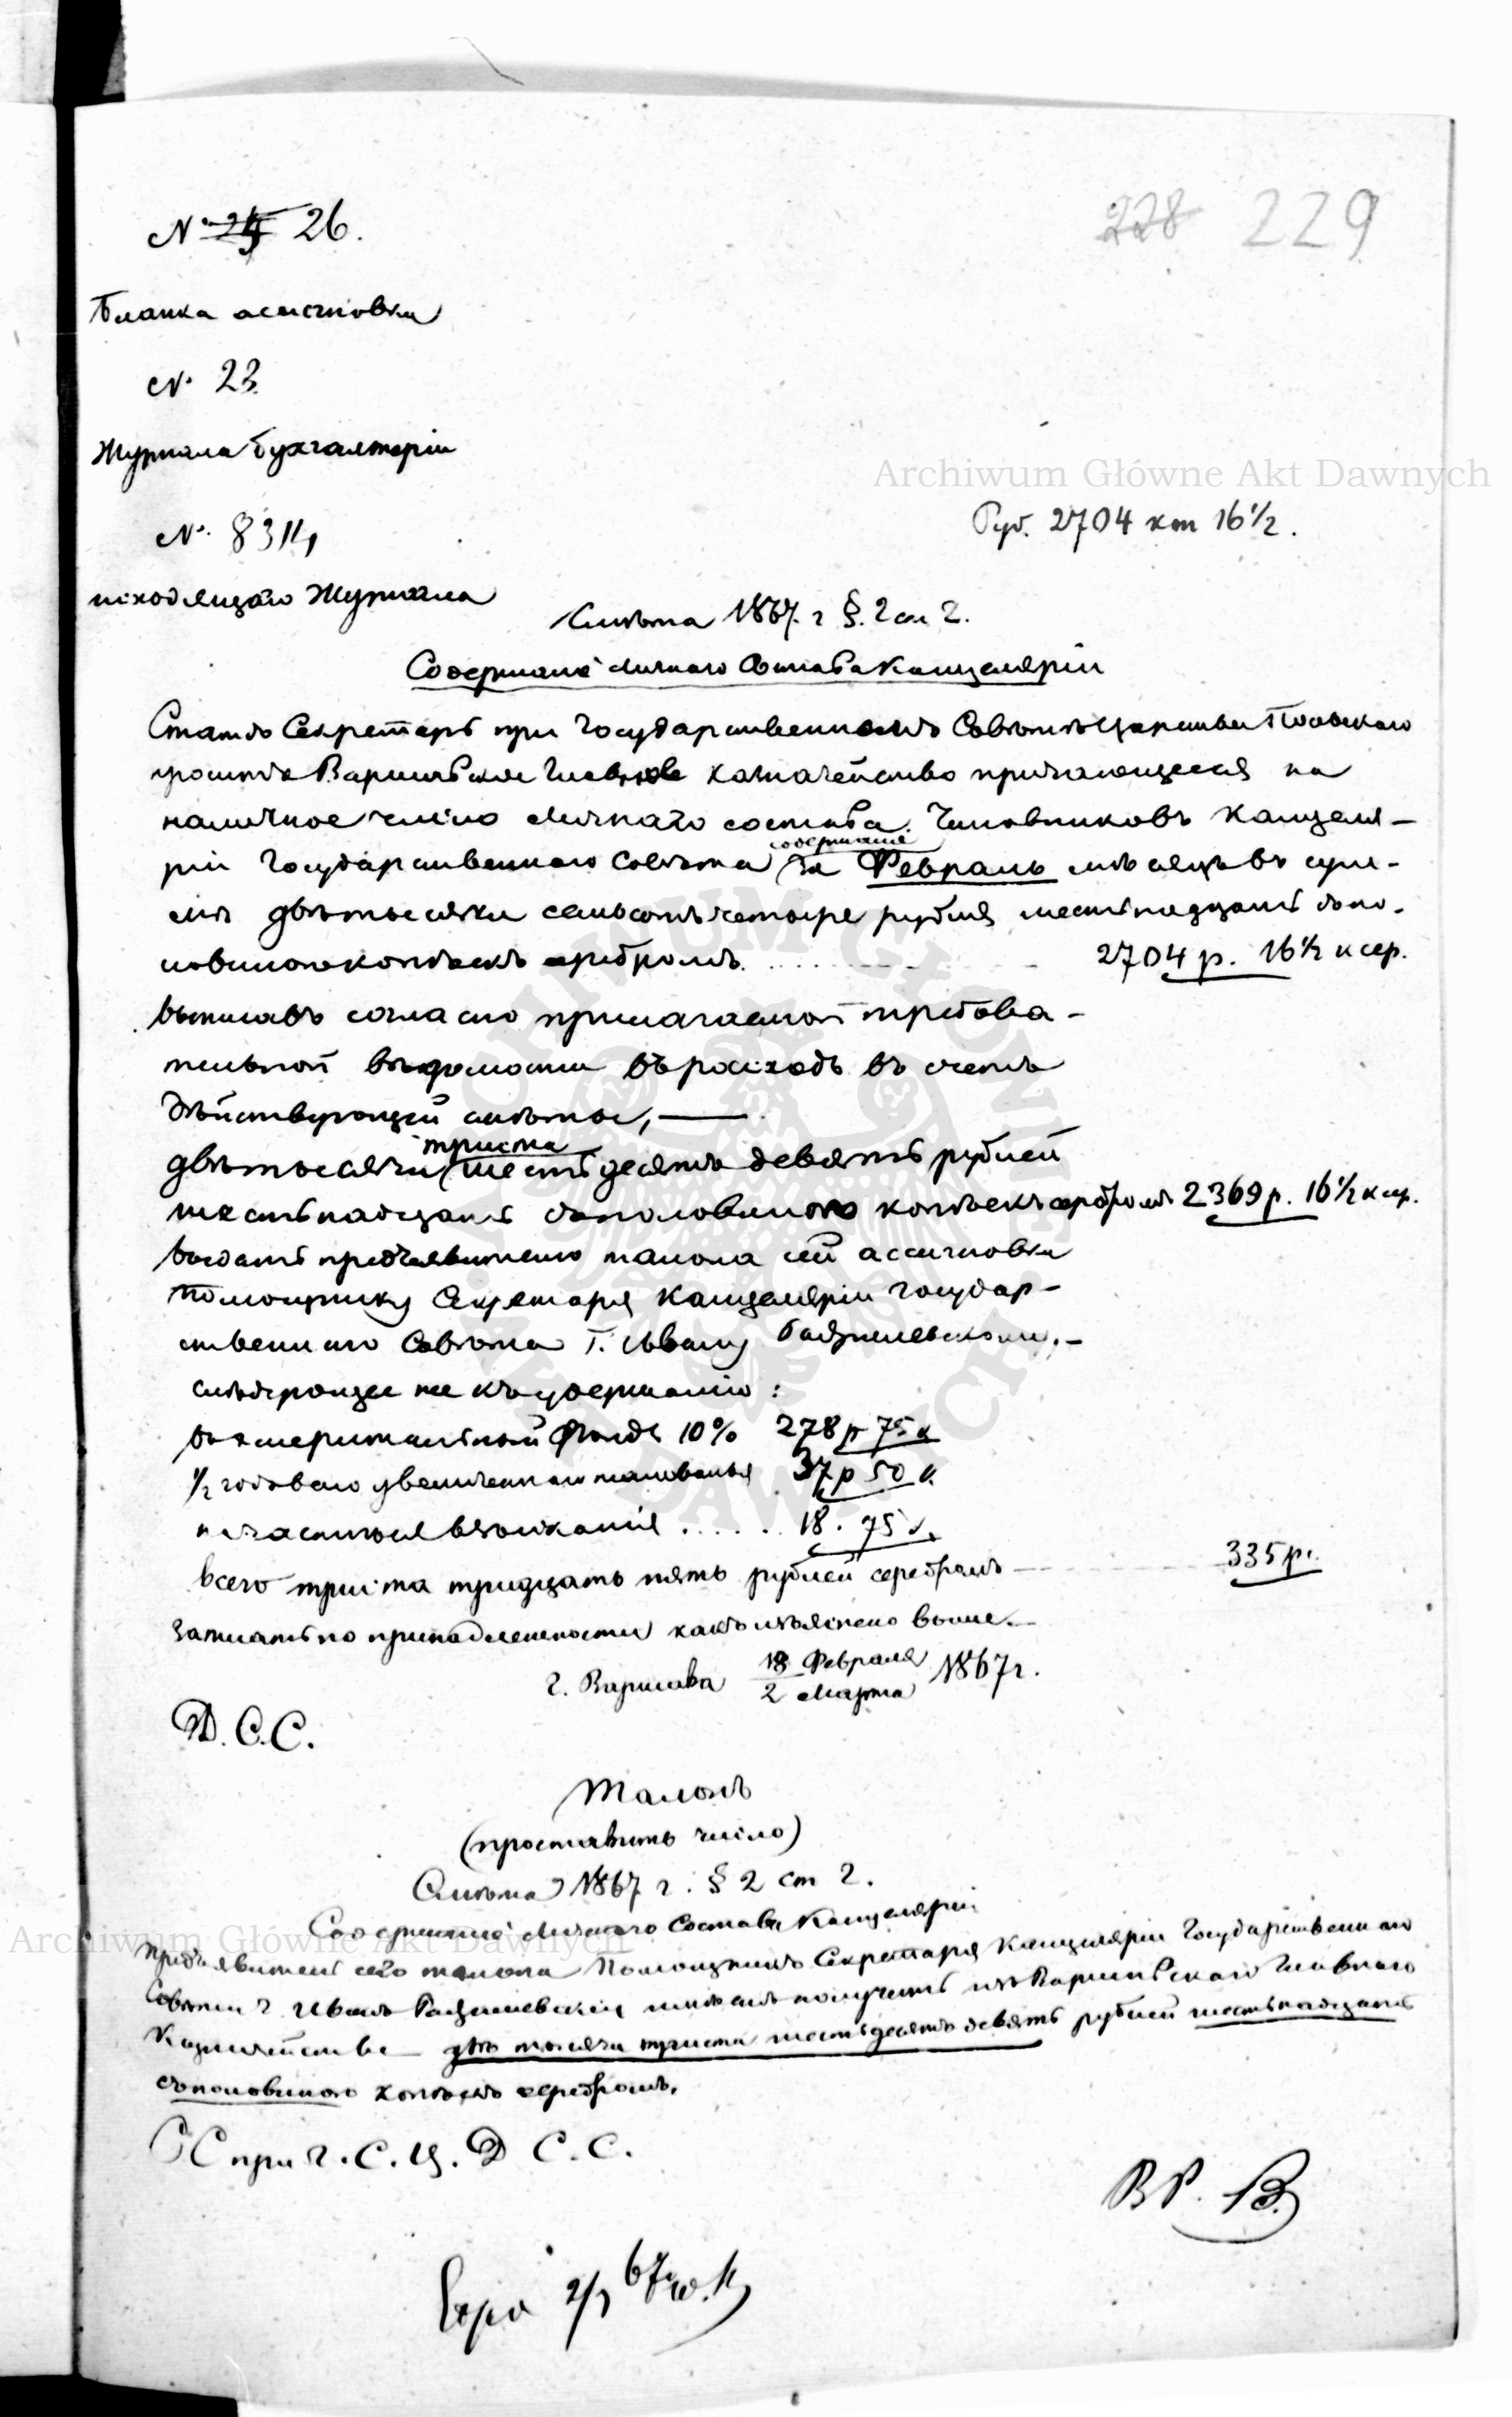 228 229
№ 25 26.
Бланка ассигновки
№ 23.
Журнала Бухгалтеріи
Archiwum Główne Akt Dawnych
№ 8314
Руб. 2704 коп 16½.
исходящаго Журнала
Смѣта 1867. г §. 2 ст 2.
Содержаніе Личнаго Состава Канцеляріи
Статсъ Секретарь при Государственномъ Совѣтѣ Царства Польскаго
проситъ Варшавское Главное Казначейство причитающееся на
наличное число Личнаго состава Чиновниковъ Канцеля-
содержаніе
ріи Государственнаго Совѣта за Февраль мѣсяцъ въ сум-
мѣ двѣ тысячи семьсотъ четыре рубля шестнадцать съ по-
ловиною копѣекъ серебромъ. 2704 р. 16½ к сер.
выписавъ согласно прилагаемой требова-
тельной вѣдомости въ расходъ въ счетъ
дѣйствующей смѣты, —
триста
двѣ тысячи шестьдесятъ девять рублей
шестнадцать съ половиною копѣекъ серебромъ 2369 р. 16½ к сер.
выдать предъявителю талона сей ассигновки
Помощнику Секретаря Канцеляріи Государ-
ственнаго Совѣта Г. Ивану
слѣдующіе же къ удержанію:
въ эмеритальный фондъ 10% 278 р 75 к
½ годоваго увеличеннаго жалованья 37 р 50 к.
частныя взысканія . . . . . . 18. 75 к.
всего триста тридцать пять рублей серебромъ 335 р.
записать по принадлежности какъ изъяснено выше.
г. Варшава 18 Февраля / 2 Марта 1867 г.
Д. С. С.
Талонъ
(проставить число)
Смѣта 1867 г. § 2 ст 2.
Содержаніе Личнаго Состава Канцеляріи
Archiwum Główne Akt Dawnych
Предъявитель сего талона Помощникъ Секретаря Канцеляріи Государственнаго
Совѣта Г. Иванъ имѣетъ получить изъ Варшавскаго Главнаго
Казначейства двѣ тысячи триста шестьдесятъ девять рублей шестнадцать
съ половиною копѣекъ серебромъ.
С С при Г. С. Ц. Д С. С.
ВР. В.